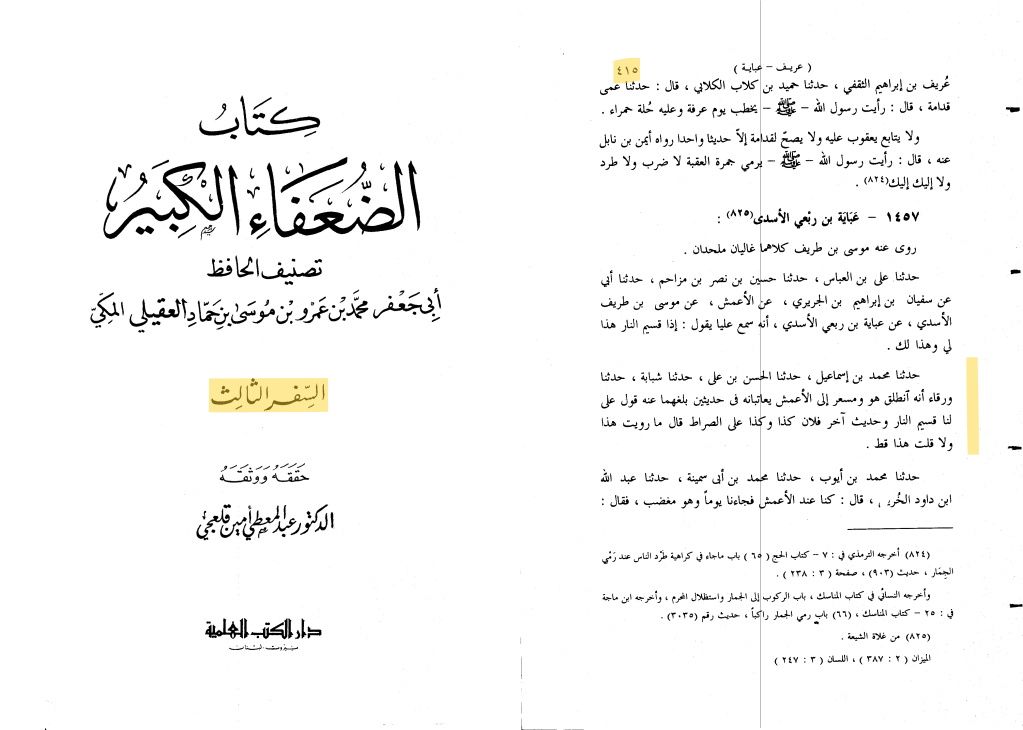 كِتَابُ
الضُّعَفَاءِ الكَبِيرُ
تصنيف الحافظ
أبي جَعْفَر محمَّد بْن عَمْرو بْن مُوسَىٰ بْنِ حَمَّاد العقيلي المكيّ
السِّفر الثالث
حَقَّقَهُ وَوَثَّقَهُ
الدكتور عبد المعطي أمين قلعجي
دار الكتب العلمية
بيروت - لبنان
( عريف – عباية )
٤١٥
عُريف بن إبراهيم الثقفي ، حدثنا حميد بن كلاب الكلابي ، قال : حدثنا عمى
قدامة ، قال : رأيت رسول الله – ﷺ – يخطب يوم عرفة وعليه حُلة حمراء .
ولا يتابع يعقوب عليه ولا يصحّ لقدامة إلاّ حديثا واحدا رواه أيمن بن نابل
عنه ، قال : رأيت رسول الله – ﷺ – يرمي جمرة العقبة لا ضرب ولا طرد
ولا إليك إليك(٨٢٤) .
١٤٥٧ – عَبَايَة بن ربْعي الأسدى(٨٢٥) :
روى عنه موسى بن طريف كلاهما غاليان ملحدان .
حدثنا على بن العباس ، حدثنا حسين بن نصر بن مزاحم ، حدثنا أبي
عن سفيان بن إبراهيم بن الجريري ، عن الأعمش ، عن موسى بن طريف
الأسدي ، عن عباية بن ربعي الأسدي ، أنه سمع عليا يقول : إذا قسيم النار هذا
لي وهذا لك .
حدثنا محمد بن إسماعيل ، حدثنا الحسن بن على ، حدثنا شبابة ، حدثنا
ورقاء أنه آنطلق هو ومسعر إلى الأعمش يعاتبانه فى حديثين بلغهما عنه قول على
لنا قسيم النار وحديث آخر فلان كذا وكذا على الصراط قال ما رويت هذا
ولا قلت هذا قط .
حدثنا محمد بن أيوب ، حدثنا محمد بن أبى سمينة ، حدثنا عبد الله
ابن داود ، قال : كنا عند الأعمش فجاءنا يوماً وهو مغضب ، فقال :
(٨٢٤) أخرجه الترمذي في : ٧ – كتاب الحج ( ٦٥ ) باب ماجاء في كراهية طرْد الناس عند رَمْي
الجِمَار ، حديث (٩٠٣) ، صفحة ( ٣ : ٢٣٨ ) .
وأخرجه النسائي في كتاب المناسك ، باب الركوب إلى الجمار واستظلال المحرم ، وأخرجه ابن ماجة
في : ٢٥ – كتاب المناسك ، (٦٦) باب رمي الجمار راكباً ، حديث رقم (٣٠٣٥) .
(٨٢٥) من غلاة الشيعة .
الميزان ( ٢ : ٣٨٧ ) ، اللسان ( ٣ : ٢٤٧ )